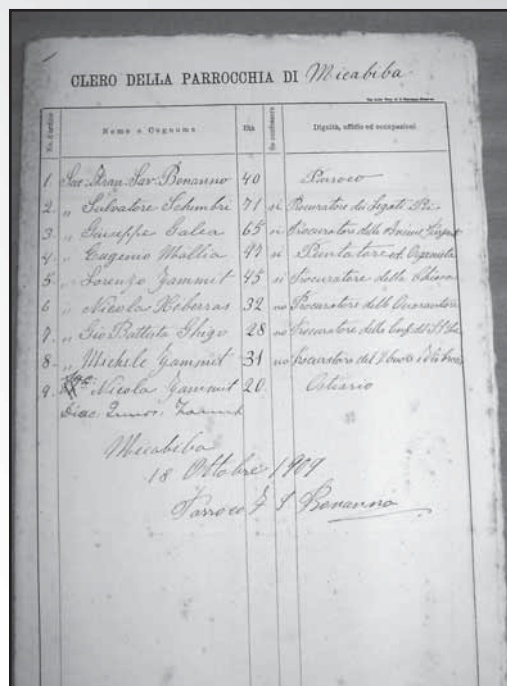 CLERO DELLA PARROCCHIA DI Micabiba
No. d'ordine Nome e Cognome Età Se confessore Dignità, uffizio ed occupazioni
1. Sac. Fran. Sav. Bonanno 40 Paroco
2. „ Salvatore Schembri 71 si Procuratore dei Legati Pii
3. „ Giuseppe Galea 65 si Procuratore delle
4. „ Eugenio Mallia 47 si Puntatore ed Organista
5. „ Lorenzo Zammit 45 si Procuratore della Chiesa
6 „ Nicola Heberras 32 no Procuratore delle Quarantore
7. „ Gio Battista Ghigo 28 no Procuratore della
8. „ Michele Zammit 31 no Procuratore del
9. Nicola Zammit 20 Ostiario
Diac.
Micabiba
18 Ottobre 1909
Parroco F S Bonanno